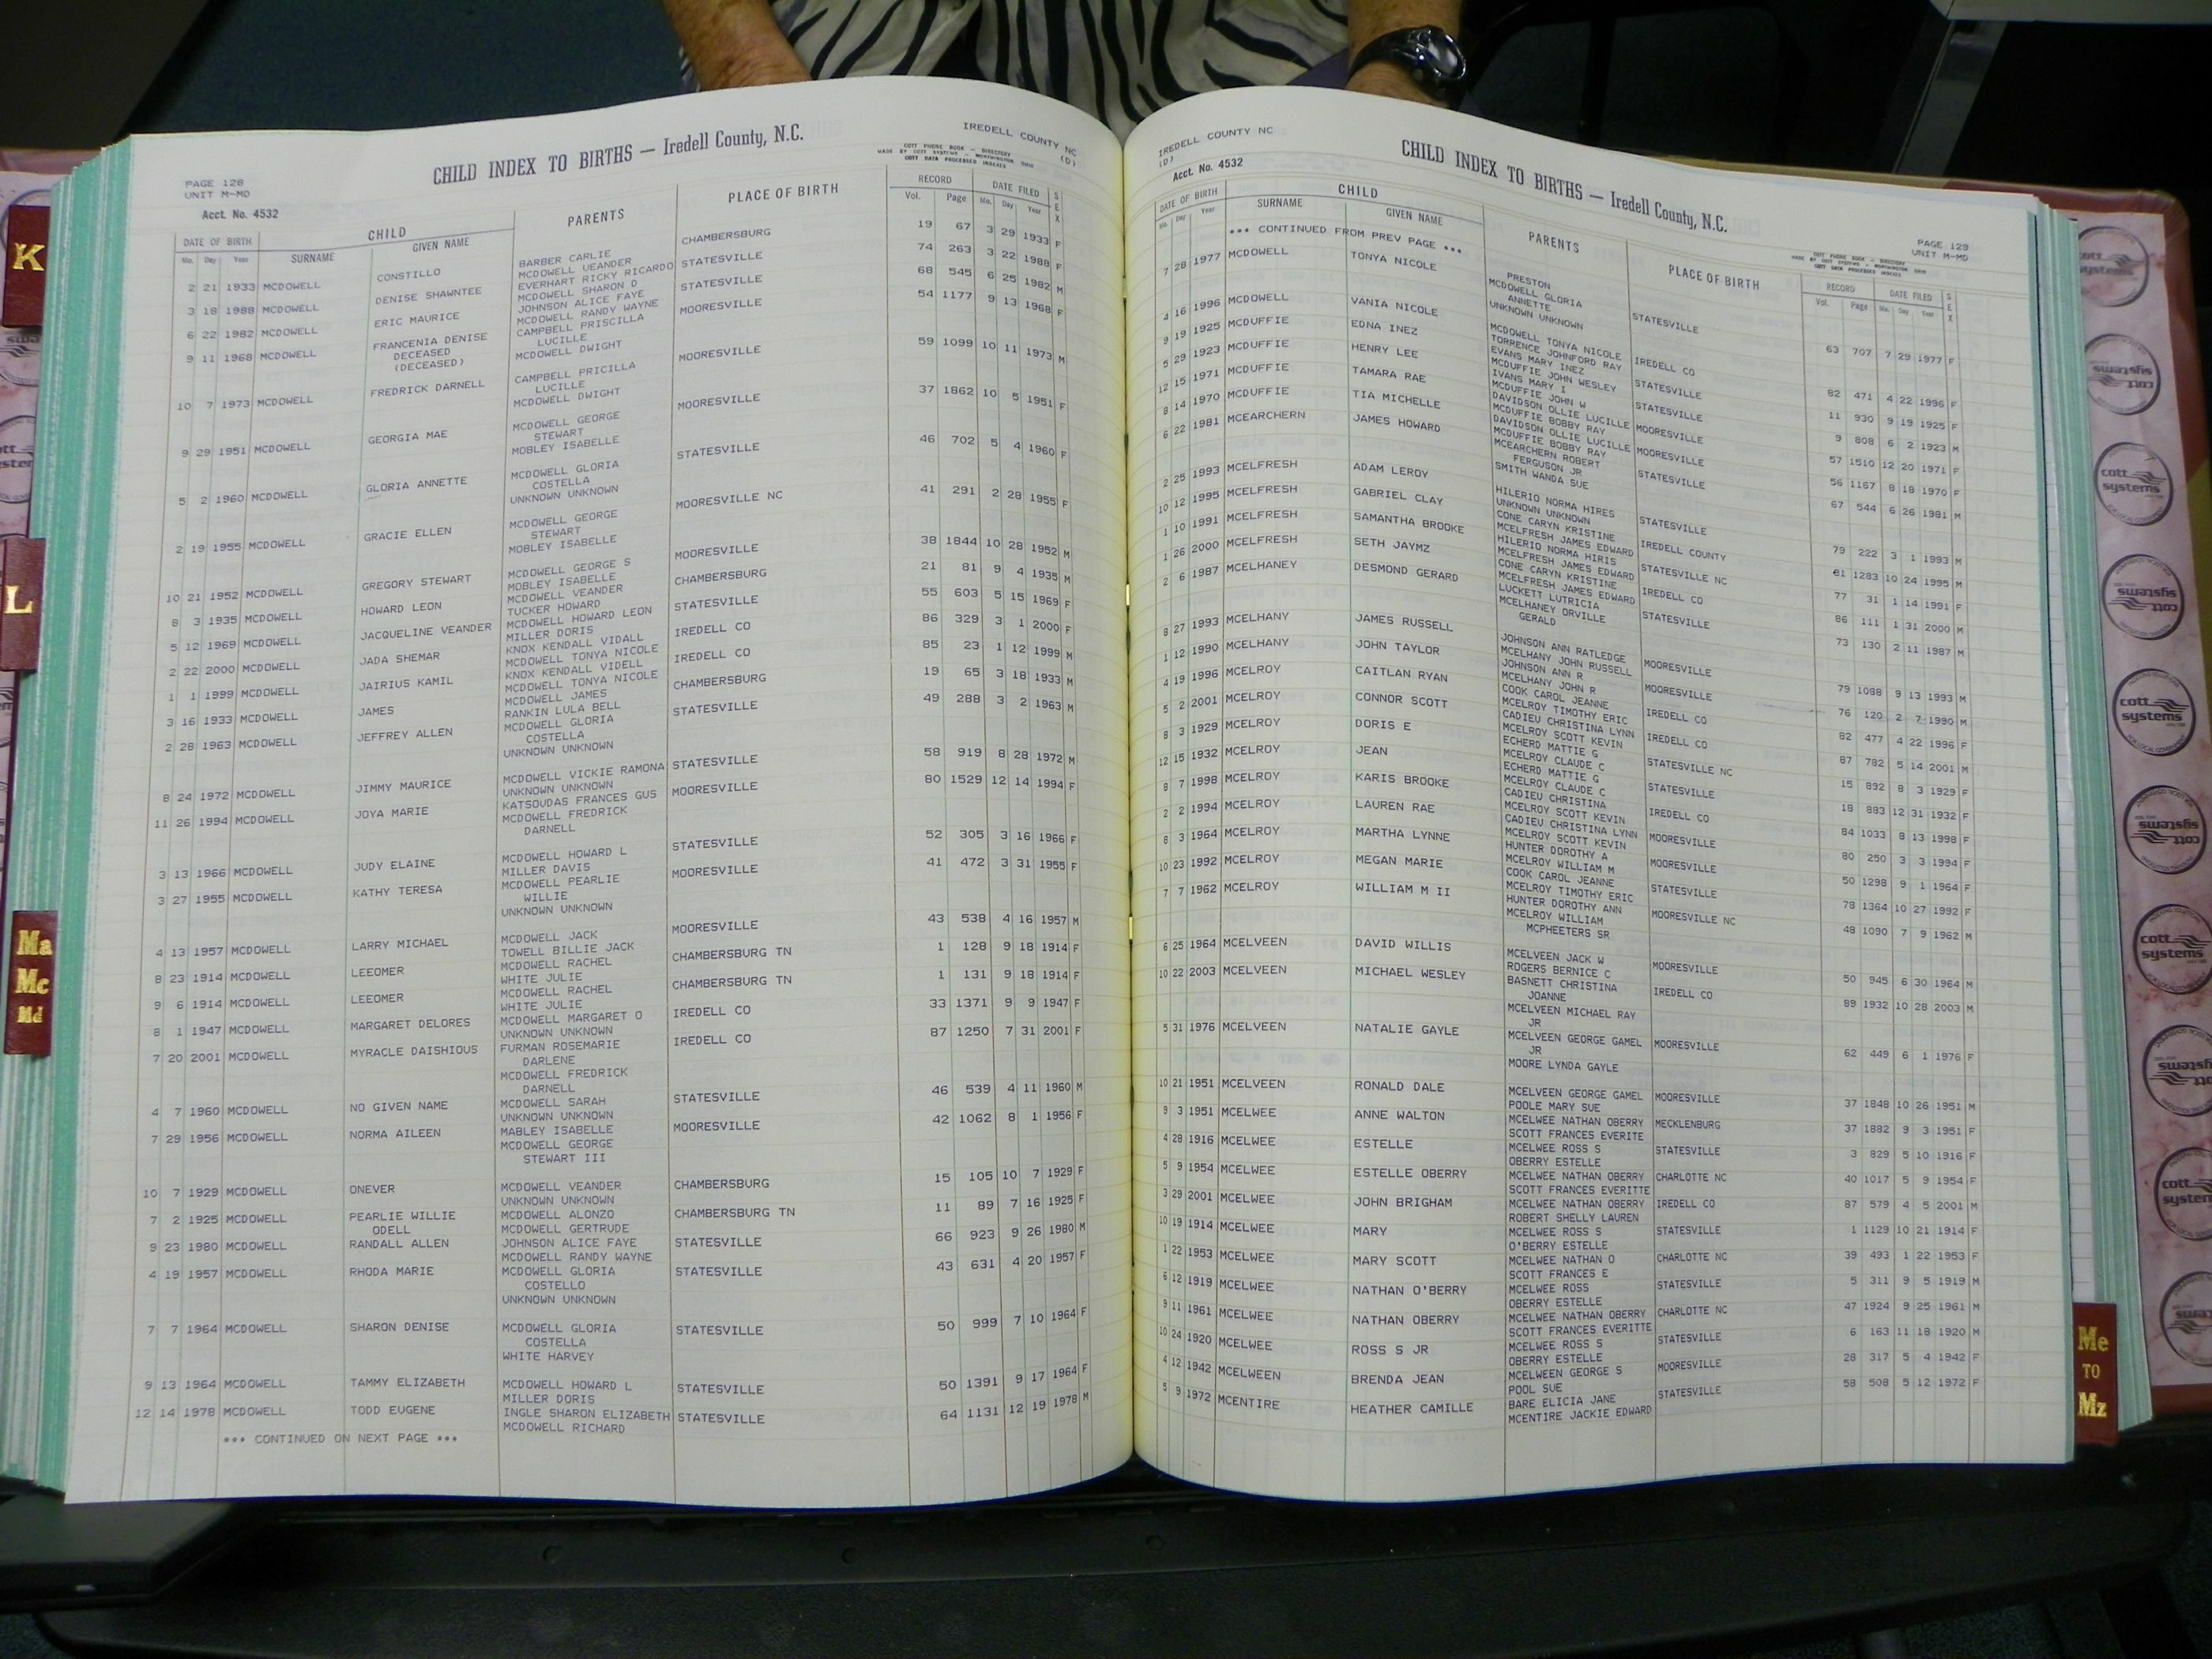 PAGE 128
UNIT M-MD
Acct. No. 4532
CHILD INDEX TO BIRTHS — Iredell County, N.C.
COTT PHONE BOOK - DIRECTORY
MADE BY COTT SYSTEMS - WORTHINGTON OHIO
COTT DATA PROCESSED INDEXES
IREDELL COUNTY NC
(D)
DATE OF BIRTH CHILD PARENTS PLACE OF BIRTH RECORD DATE FILED SEX
Mo. Day Year SURNAME GIVEN NAME Vol. Page Mo. Day Year
2 21 1933 MCDOWELL CONSTILLO BARBER CARLIE CHAMBERSBURG 19 67 3 29 1933 F
MCDOWELL VEANDER
3 18 1988 MCDOWELL DENISE SHAWNTEE EVERHART RICKY RICARDO STATESVILLE 74 263 3 22 1988 F
MCDOWELL SHARON D
6 22 1982 MCDOWELL ERIC MAURICE JOHNSON ALICE FAYE STATESVILLE 68 545 6 25 1982 M
MCDOWELL RANDY WAYNE
9 11 1968 MCDOWELL FRANCENIA DENISE CAMPBELL PRISCILLA MOORESVILLE 54 1177 9 13 1968 F
DECEASED LUCILLE
(DECEASED) MCDOWELL DWIGHT
10 7 1973 MCDOWELL FREDRICK DARNELL CAMPBELL PRICILLA MOORESVILLE 59 1099 10 11 1973 M
LUCILLE
MCDOWELL DWIGHT
9 29 1951 MCDOWELL GEORGIA MAE MCDOWELL GEORGE MOORESVILLE 37 1862 10 5 1951 F
STEWART
MOBLEY ISABELLE
5 2 1960 MCDOWELL GLORIA ANNETTE MCDOWELL GLORIA STATESVILLE 46 702 5 4 1960 F
COSTELLA
UNKNOWN UNKNOWN
2 19 1955 MCDOWELL GRACIE ELLEN MCDOWELL GEORGE MOORESVILLE NC 41 291 2 28 1955 F
STEWART
MOBLEY ISABELLE
10 21 1952 MCDOWELL GREGORY STEWART MCDOWELL GEORGE S MOORESVILLE 38 1844 10 28 1952 M
MOBLEY ISABELLE
8 3 1935 MCDOWELL HOWARD LEON MCDOWELL VEANDER CHAMBERSBURG 21 81 9 4 1935 M
TUCKER HOWARD
5 12 1969 MCDOWELL JACQUELINE VEANDER MCDOWELL HOWARD LEON STATESVILLE 55 603 5 15 1969 F
MILLER DORIS
2 22 2000 MCDOWELL JADA SHEMAR KNOX KENDALL VIDALL IREDELL CO 86 329 3 1 2000 F
MCDOWELL TONYA NICOLE
1 1 1999 MCDOWELL JAIRIUS KAMIL KNOX KENDALL VIDELL IREDELL CO 85 23 1 12 1999 M
MCDOWELL TONYA NICOLE
3 16 1933 MCDOWELL JAMES MCDOWELL JAMES CHAMBERSBURG 19 65 3 18 1933 M
RANKIN LULA BELL
2 28 1963 MCDOWELL JEFFREY ALLEN MCDOWELL GLORIA STATESVILLE 49 288 3 2 1963 M
COSTELLA
UNKNOWN UNKNOWN
8 24 1972 MCDOWELL JIMMY MAURICE MCDOWELL VICKIE RAMONA STATESVILLE 58 919 8 28 1972 M
UNKNOWN UNKNOWN
11 26 1994 MCDOWELL JOYA MARIE KATSOUDAS FRANCES GUS MOORESVILLE 80 1529 12 14 1994 F
MCDOWELL FREDRICK
DARNELL
3 13 1966 MCDOWELL JUDY ELAINE MCDOWELL HOWARD L STATESVILLE 52 305 3 16 1966 F
MILLER DAVIS
3 27 1955 MCDOWELL KATHY TERESA MCDOWELL PEARLIE MOORESVILLE 41 472 3 31 1955 F
WILLIE
UNKNOWN UNKNOWN
4 13 1957 MCDOWELL LARRY MICHAEL MCDOWELL JACK MOORESVILLE 43 538 4 16 1957 M
TOWELL BILLIE JACK
8 23 1914 MCDOWELL LEEOMER MCDOWELL RACHEL CHAMBERSBURG TN 1 128 9 18 1914 F
WHITE JULIE
9 6 1914 MCDOWELL LEEOMER MCDOWELL RACHEL CHAMBERSBURG TN 1 131 9 18 1914 F
WHITE JULIE
8 1 1947 MCDOWELL MARGARET DELORES MCDOWELL MARGARET O IREDELL CO 33 1371 9 9 1947 F
UNKNOWN UNKNOWN
7 20 2001 MCDOWELL MYRACLE DAISHIOUS FURMAN ROSEMARIE IREDELL CO 87 1250 7 31 2001 F
DARLENE
MCDOWELL FREDRICK
DARNELL
4 7 1960 MCDOWELL NO GIVEN NAME MCDOWELL SARAH STATESVILLE 46 539 4 11 1960 M
UNKNOWN UNKNOWN
7 29 1956 MCDOWELL NORMA AILEEN MABLEY ISABELLE MOORESVILLE 42 1062 8 1 1956 F
MCDOWELL GEORGE
STEWART III
10 7 1929 MCDOWELL ONEVER MCDOWELL VEANDER CHAMBERSBURG 15 105 10 7 1929 F
UNKNOWN UNKNOWN
7 2 1925 MCDOWELL PEARLIE WILLIE MCDOWELL ALONZO CHAMBERSBURG TN 11 89 7 16 1925 F
ODELL MCDOWELL GERTRUDE
9 23 1980 MCDOWELL RANDALL ALLEN JOHNSON ALICE FAYE STATESVILLE 66 923 9 26 1980 M
MCDOWELL RANDY WAYNE
4 19 1957 MCDOWELL RHODA MARIE MCDOWELL GLORIA STATESVILLE 43 631 4 20 1957 F
COSTELLO
UNKNOWN UNKNOWN
7 7 1964 MCDOWELL SHARON DENISE MCDOWELL GLORIA STATESVILLE 50 999 7 10 1964 F
COSTELLA
WHITE HARVEY
9 13 1964 MCDOWELL TAMMY ELIZABETH MCDOWELL HOWARD L STATESVILLE 50 1391 9 17 1964 F
MILLER DORIS
12 14 1978 MCDOWELL TODD EUGENE INGLE SHARON ELIZABETH STATESVILLE 64 1131 12 19 1978 M
MCDOWELL RICHARD
*** CONTINUED ON NEXT PAGE ***
IREDELL COUNTY NC
(D)
Acct. No. 4532
CHILD INDEX TO BIRTHS — Iredell County, N.C.
PAGE 129
UNIT M-MD
COTT PHONE BOOK - DIRECTORY
MADE BY COTT SYSTEMS - WORTHINGTON OHIO
COTT DATA PROCESSED INDEXES
DATE OF BIRTH CHILD PARENTS PLACE OF BIRTH RECORD DATE FILED SEX
Mo. Day Year SURNAME GIVEN NAME Vol. Page Mo. Day Year
*** CONTINUED FROM PREV PAGE ***
7 28 1977 MCDOWELL TONYA NICOLE PRESTON STATESVILLE 63 707 7 29 1977 F
MCDOWELL GLORIA
ANNETTE
UNKNOWN UNKNOWN
4 16 1996 MCDOWELL VANIA NICOLE MCDOWELL TONYA NICOLE IREDELL CO 82 471 4 22 1996 F
TORRENCE JOHNFORD RAY
9 19 1925 MCDUFFIE EDNA INEZ EVANS MARY INEZ STATESVILLE 11 930 9 19 1925 F
MCDUFFIE JOHN WESLEY
5 29 1923 MCDUFFIE HENRY LEE IVANS MARY I STATESVILLE 9 808 6 2 1923 M
MCDUFFIE JOHN W
12 15 1971 MCDUFFIE TAMARA RAE DAVIDSON OLLIE LUCILLE MOORESVILLE 57 1510 12 20 1971 F
MCDUFFIE BOBBY RAY
8 14 1970 MCDUFFIE TIA MICHELLE DAVIDSON OLLIE LUCILLE MOORESVILLE 56 1167 8 18 1970 F
MCDUFFIE BOBBY RAY
6 22 1981 MCEARCHERN JAMES HOWARD MCEARCHERN ROBERT STATESVILLE 67 544 6 26 1981 M
FERGUSON JR
SMITH WANDA SUE
2 25 1993 MCELFRESH ADAM LEROY HILERIO NORMA HIRES STATESVILLE 79 222 3 1 1993 M
UNKNOWN UNKNOWN
10 12 1995 MCELFRESH GABRIEL CLAY CONE CARYN KRISTINE IREDELL COUNTY 81 1283 10 24 1995 M
MCELFRESH JAMES EDWARD
1 10 1991 MCELFRESH SAMANTHA BROOKE HILERIO NORMA HIRIS STATESVILLE NC 77 31 1 14 1991 F
MCELFRESH JAMES EDWARD
1 26 2000 MCELFRESH SETH JAYMZ CONE CARYN KRISTINE IREDELL CO 86 111 1 31 2000 M
MCELFRESH JAMES EDWARD
2 6 1987 MCELHANEY DESMOND GERARD LUCKETT LUTRICIA STATESVILLE 73 130 2 11 1987 M
MCELHANEY ORVILLE
GERALD
8 27 1993 MCELHANY JAMES RUSSELL JOHNSON ANN RATLEDGE MOORESVILLE 79 1088 9 13 1993 M
MCELHANY JOHN RUSSELL
1 12 1990 MCELHANY JOHN TAYLOR JOHNSON ANN R MOORESVILLE 76 120 2 7 1990 M
MCELHANY JOHN R
4 19 1996 MCELROY CAITLAN RYAN COOK CAROL JEANNE IREDELL CO 82 477 4 22 1996 F
MCELROY TIMOTHY ERIC
5 2 2001 MCELROY CONNOR SCOTT CADIEU CHRISTINA LYNN IREDELL CO 87 782 5 14 2001 M
MCELROY SCOTT KEVIN
8 3 1929 MCELROY DORIS E ECHERD MATTIE G STATESVILLE NC 15 892 8 3 1929 F
MCELROY CLAUDE C
12 15 1932 MCELROY JEAN ECHERD MATTIE G STATESVILLE 18 883 12 31 1932 F
MCELROY CLAUDE C
8 7 1998 MCELROY KARIS BROOKE CADIEU CHRISTINA IREDELL CO 84 1033 8 13 1998 F
MCELROY SCOTT KEVIN
2 2 1994 MCELROY LAUREN RAE CADIEU CHRISTINA LYNN MOORESVILLE 80 250 3 3 1994 F
MCELROY SCOTT KEVIN
8 3 1964 MCELROY MARTHA LYNNE HUNTER DOROTHY A MOORESVILLE 50 1298 9 1 1964 F
MCELROY WILLIAM M
10 23 1992 MCELROY MEGAN MARIE COOK CAROL JEANNE STATESVILLE 78 1364 10 27 1992 F
MCELROY TIMOTHY ERIC
7 7 1962 MCELROY WILLIAM M II HUNTER DOROTHY ANN MOORESVILLE NC 48 1090 7 9 1962 M
MCELROY WILLIAM
MCPHEETERS SR
6 25 1964 MCELVEEN DAVID WILLIS MCELVEEN JACK W MOORESVILLE 50 945 6 30 1964 M
ROGERS BERNICE C
10 22 2003 MCELVEEN MICHAEL WESLEY BASNETT CHRISTINA IREDELL CO 89 1932 10 28 2003 M
JOANNE
MCELVEEN MICHAEL RAY
JR
5 31 1976 MCELVEEN NATALIE GAYLE MCELVEEN GEORGE GAMEL MOORESVILLE 62 449 6 1 1976 F
JR
MOORE LYNDA GAYLE
10 21 1951 MCELVEEN RONALD DALE MCELVEEN GEORGE GAMEL MOORESVILLE 37 1848 10 26 1951 M
POOLE MARY SUE
9 3 1951 MCELWEE ANNE WALTON MCELWEE NATHAN OBERRY MECKLENBURG 37 1882 9 3 1951 F
SCOTT FRANCES EVERITE
4 28 1916 MCELWEE ESTELLE MCELWEE ROSS S STATESVILLE 3 829 5 10 1916 F
OBERRY ESTELLE
5 9 1954 MCELWEE ESTELLE OBERRY MCELWEE NATHAN OBERRY CHARLOTTE NC 40 1017 5 9 1954 F
SCOTT FRANCES EVERITTE
3 29 2001 MCELWEE JOHN BRIGHAM MCELWEE NATHAN OBERRY IREDELL CO 87 579 4 5 2001 M
ROBERT SHELLY LAUREN
10 19 1914 MCELWEE MARY MCELWEE ROSS S STATESVILLE 1 1129 10 21 1914 F
O'BERRY ESTELLE
1 22 1953 MCELWEE MARY SCOTT MCELWEE NATHAN O CHARLOTTE NC 39 493 1 22 1953 F
SCOTT FRANCES E
6 12 1919 MCELWEE NATHAN O'BERRY MCELWEE ROSS STATESVILLE 5 311 9 5 1919 M
OBERRY ESTELLE
9 11 1961 MCELWEE NATHAN OBERRY MCELWEE NATHAN OBERRY CHARLOTTE NC 47 1924 9 25 1961 M
SCOTT FRANCES EVERITTE
10 24 1920 MCELWEE ROSS S JR MCELWEE ROSS S STATESVILLE 6 163 11 18 1920 M
OBERRY ESTELLE
4 12 1942 MCELWEEN BRENDA JEAN MCELWEEN GEORGE S MOORESVILLE 28 317 5 4 1942 F
POOL SUE
5 9 1972 MCENTIRE HEATHER CAMILLE BARE ELICIA JANE STATESVILLE 58 508 5 12 1972 F
MCENTIRE JACKIE EDWARD
K
L
Ma
Mc
Md
Me
TO
Mz
cott
systems